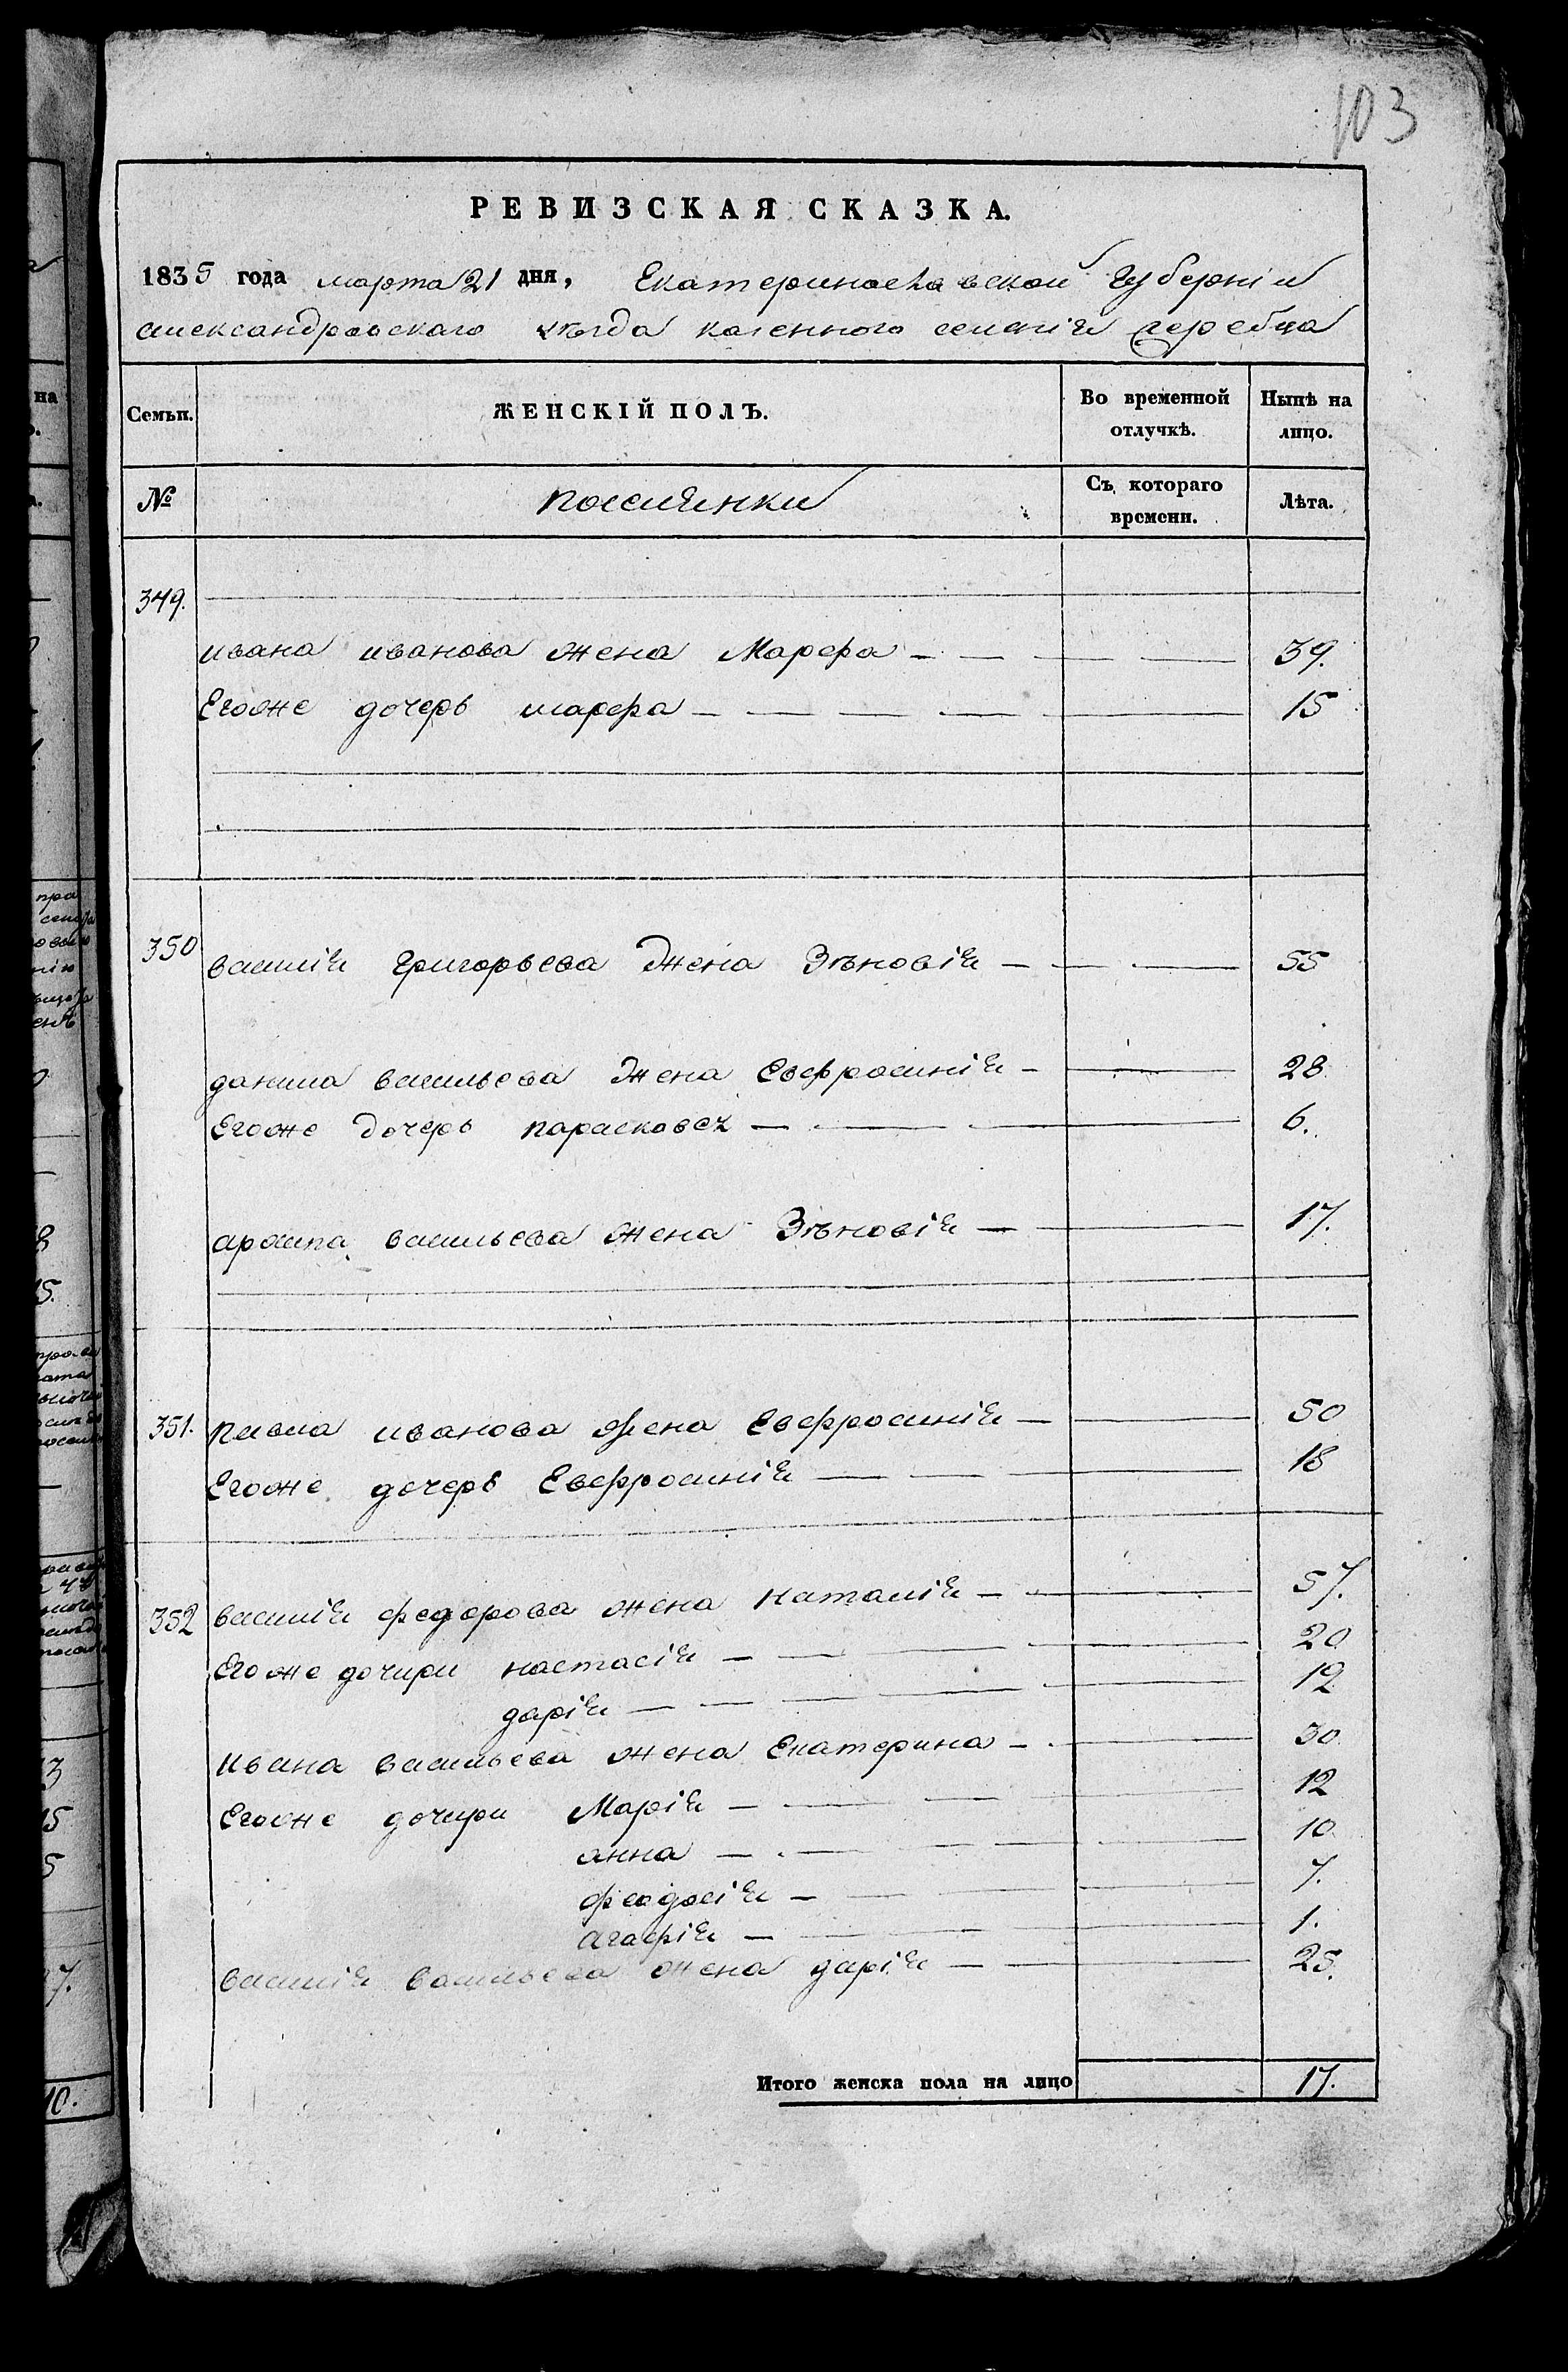 103
РЕВИЗСКАЯ СКАЗКА.
1835 года марта 21 дня, Екатеринославской Губерніи
александровскаго уѣзда казенного селенія жеребца
Семьи. ЖЕНСКІЙ ПОЛЪ. Во временной отлучкѣ. Нынѣ на лицо.
№ поселянки Съ котораго времени. Лѣта.
349.
ивана иванова жена Марфа — 39.
Егоже дочерь марфа — 15
350 василія Григорьева жена Зѣновія — 55
данила васильева жена Евфросинія — 28
Егоже дочерь парасковея — 6.
архипа васильева жена Зѣновія — 17.
351. павла иванова жена Евфросинія — 50
Егоже дочерь Евфросинія — 18
352 василія федорова жена наталія — 57.
Егоже дочири настасія — 20
дарія — 19
ивана васильева жена Екатерина — 30
Егоже дочири Марія — 12
анна — 10
феодосія — 7.
агафія — 1.
василія васильева жена дарія — 25.
Итого женска пола на лицо 17.